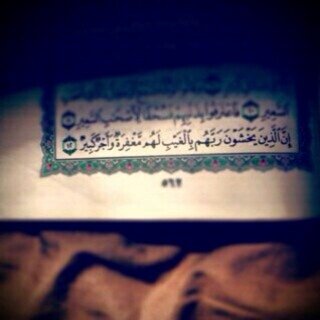 السَّعِيرِ ۝١٠ فَاعْتَرَفُوا بِذَنبِهِمْ فَسُحْقًا لِّأَصْحَابِ السَّعِيرِ ۝١١
إِنَّ الَّذِينَ يَخْشَوْنَ رَبَّهُم بِالْغَيْبِ لَهُم مَّغْفِرَةٌ وَأَجْرٌ كَبِيرٌ ۝١٢
٥٦٢